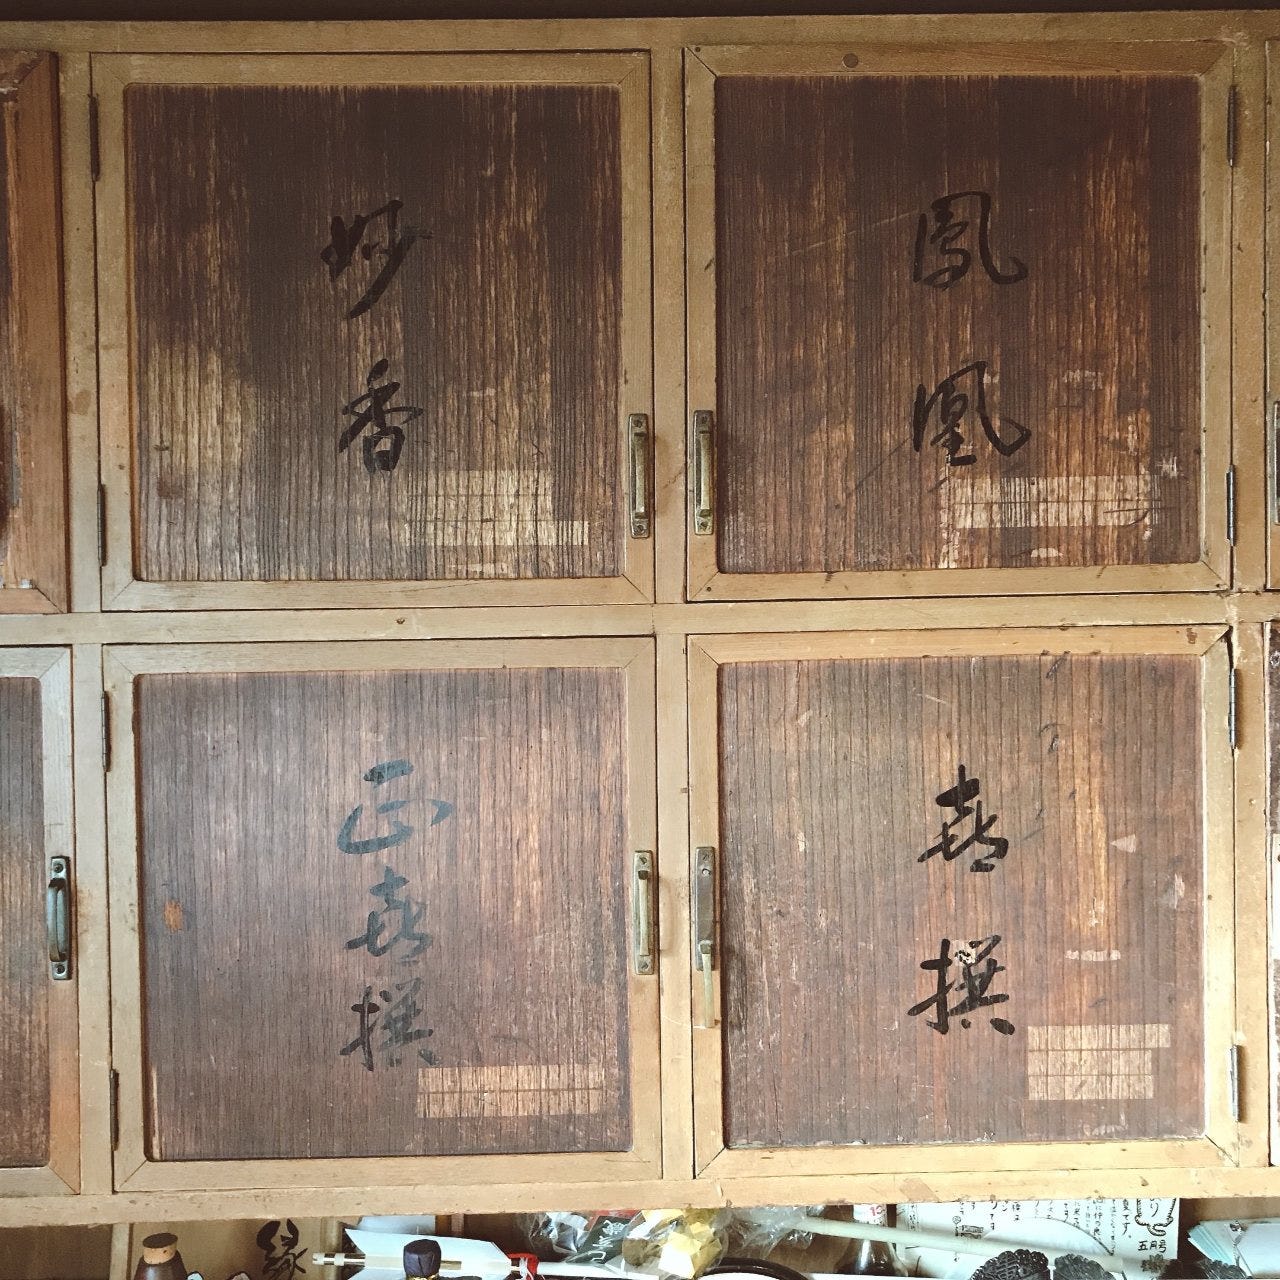 鳳凰
妙香
喜撰
正喜撰
縁
五月号